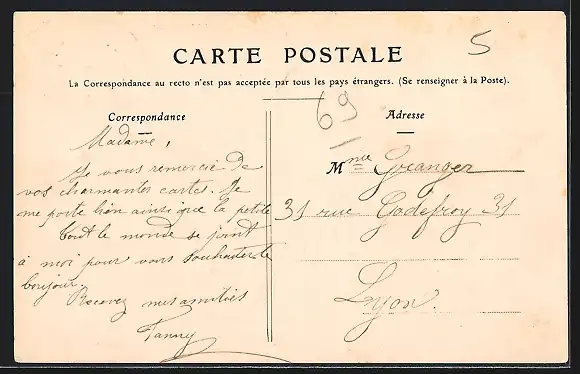 5
CARTE POSTALE
La Correspondance au recto n'est pas acceptée par tous les pays étrangers. (Se renseigner à la Poste).
69
Correspondance
Madame,
Je vous remercie de
vos charmantes cartes. Je
me porte bien ainsi que la petite
tout le monde se joint
à moi pour vous souhaiter le
bonjour.
Recevez mes amitiés
Fanny
Adresse
Mme Granger
31 rue Godefroy 31
Lyon.